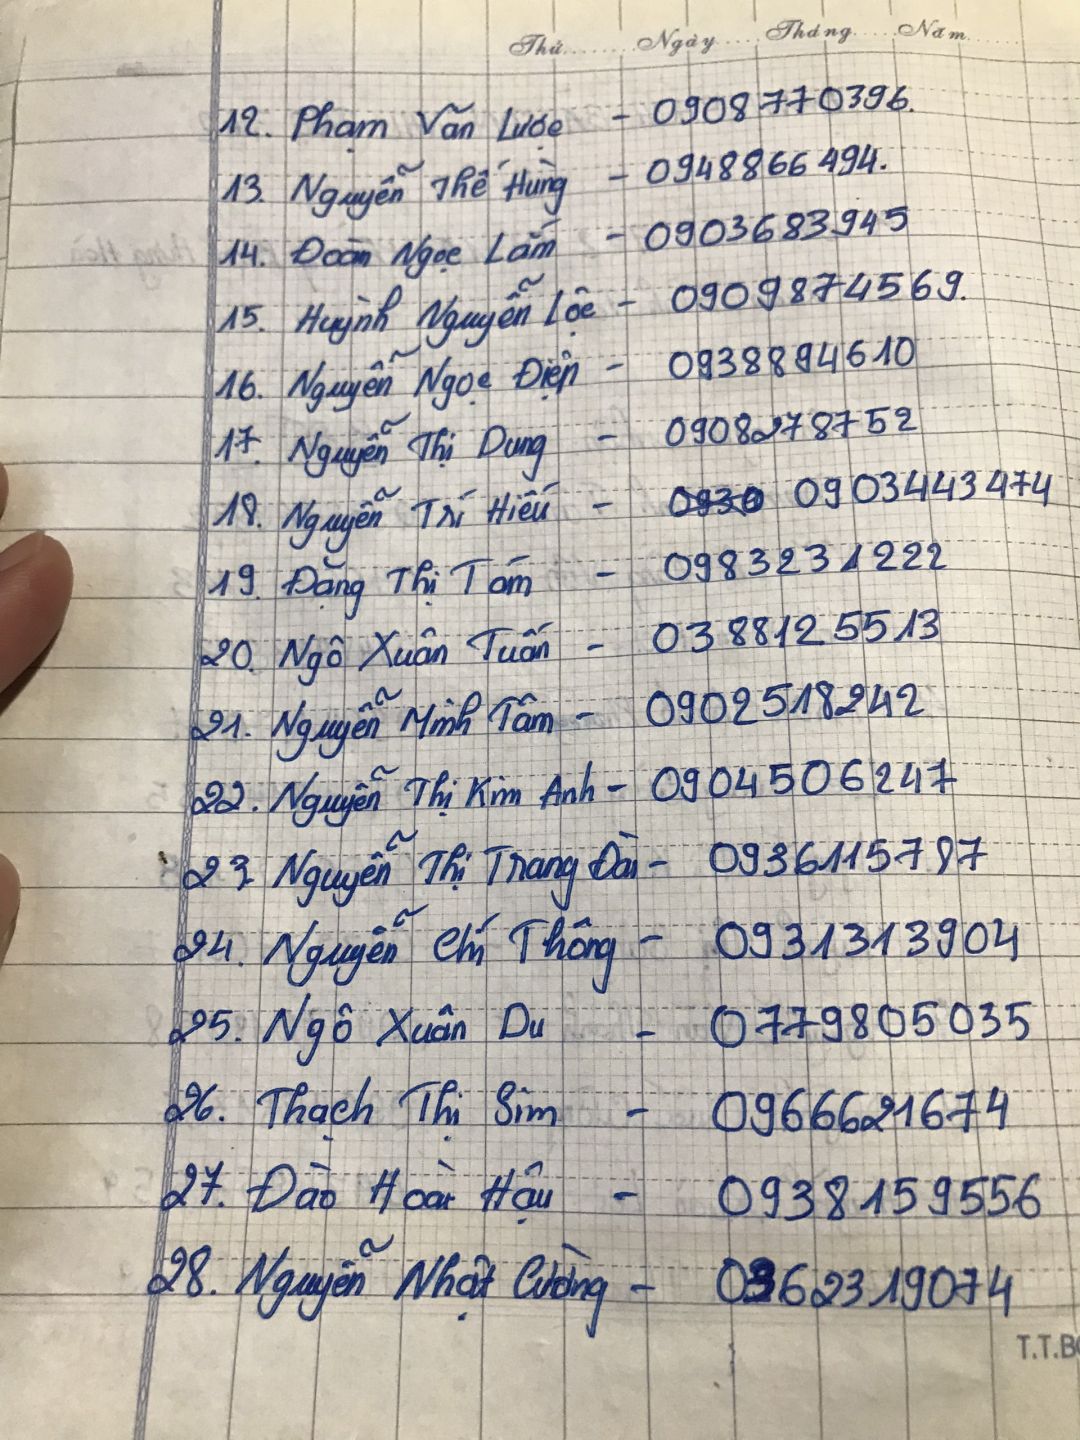 Thứ........Ngày.....Tháng.....Năm......
12. Phạm Văn Lược - 0908770396.
13. Nguyễn Thế Hùng - 0948866494.
14. Đoàn Ngọc Lắm - 0903683945
15. Huỳnh Nguyễn Lộc - 0909874569.
16. Nguyễn Ngọc Điện - 0938894610
17. Nguyễn Thị Dung - 0908278752
18. Nguyễn Trí Hiếu - 0903443474
19. Đặng Thị Tám - 0983231222
20. Ngô Xuân Tuấn - 0388125513
21. Nguyễn Minh Tâm - 0902518242
22. Nguyễn Thị Kim Anh - 0904506247
23 Nguyễn Thị Trang Đài - 0936115787
24. Nguyễn Chí Thông - 0931313904
25. Ngô Xuân Du - 0779805035
26. Thạch Thị Sim - 0966621674
27. Đào Hoài Hậu - 0938159556
28. Nguyễn Nhật Cường - 0362319074